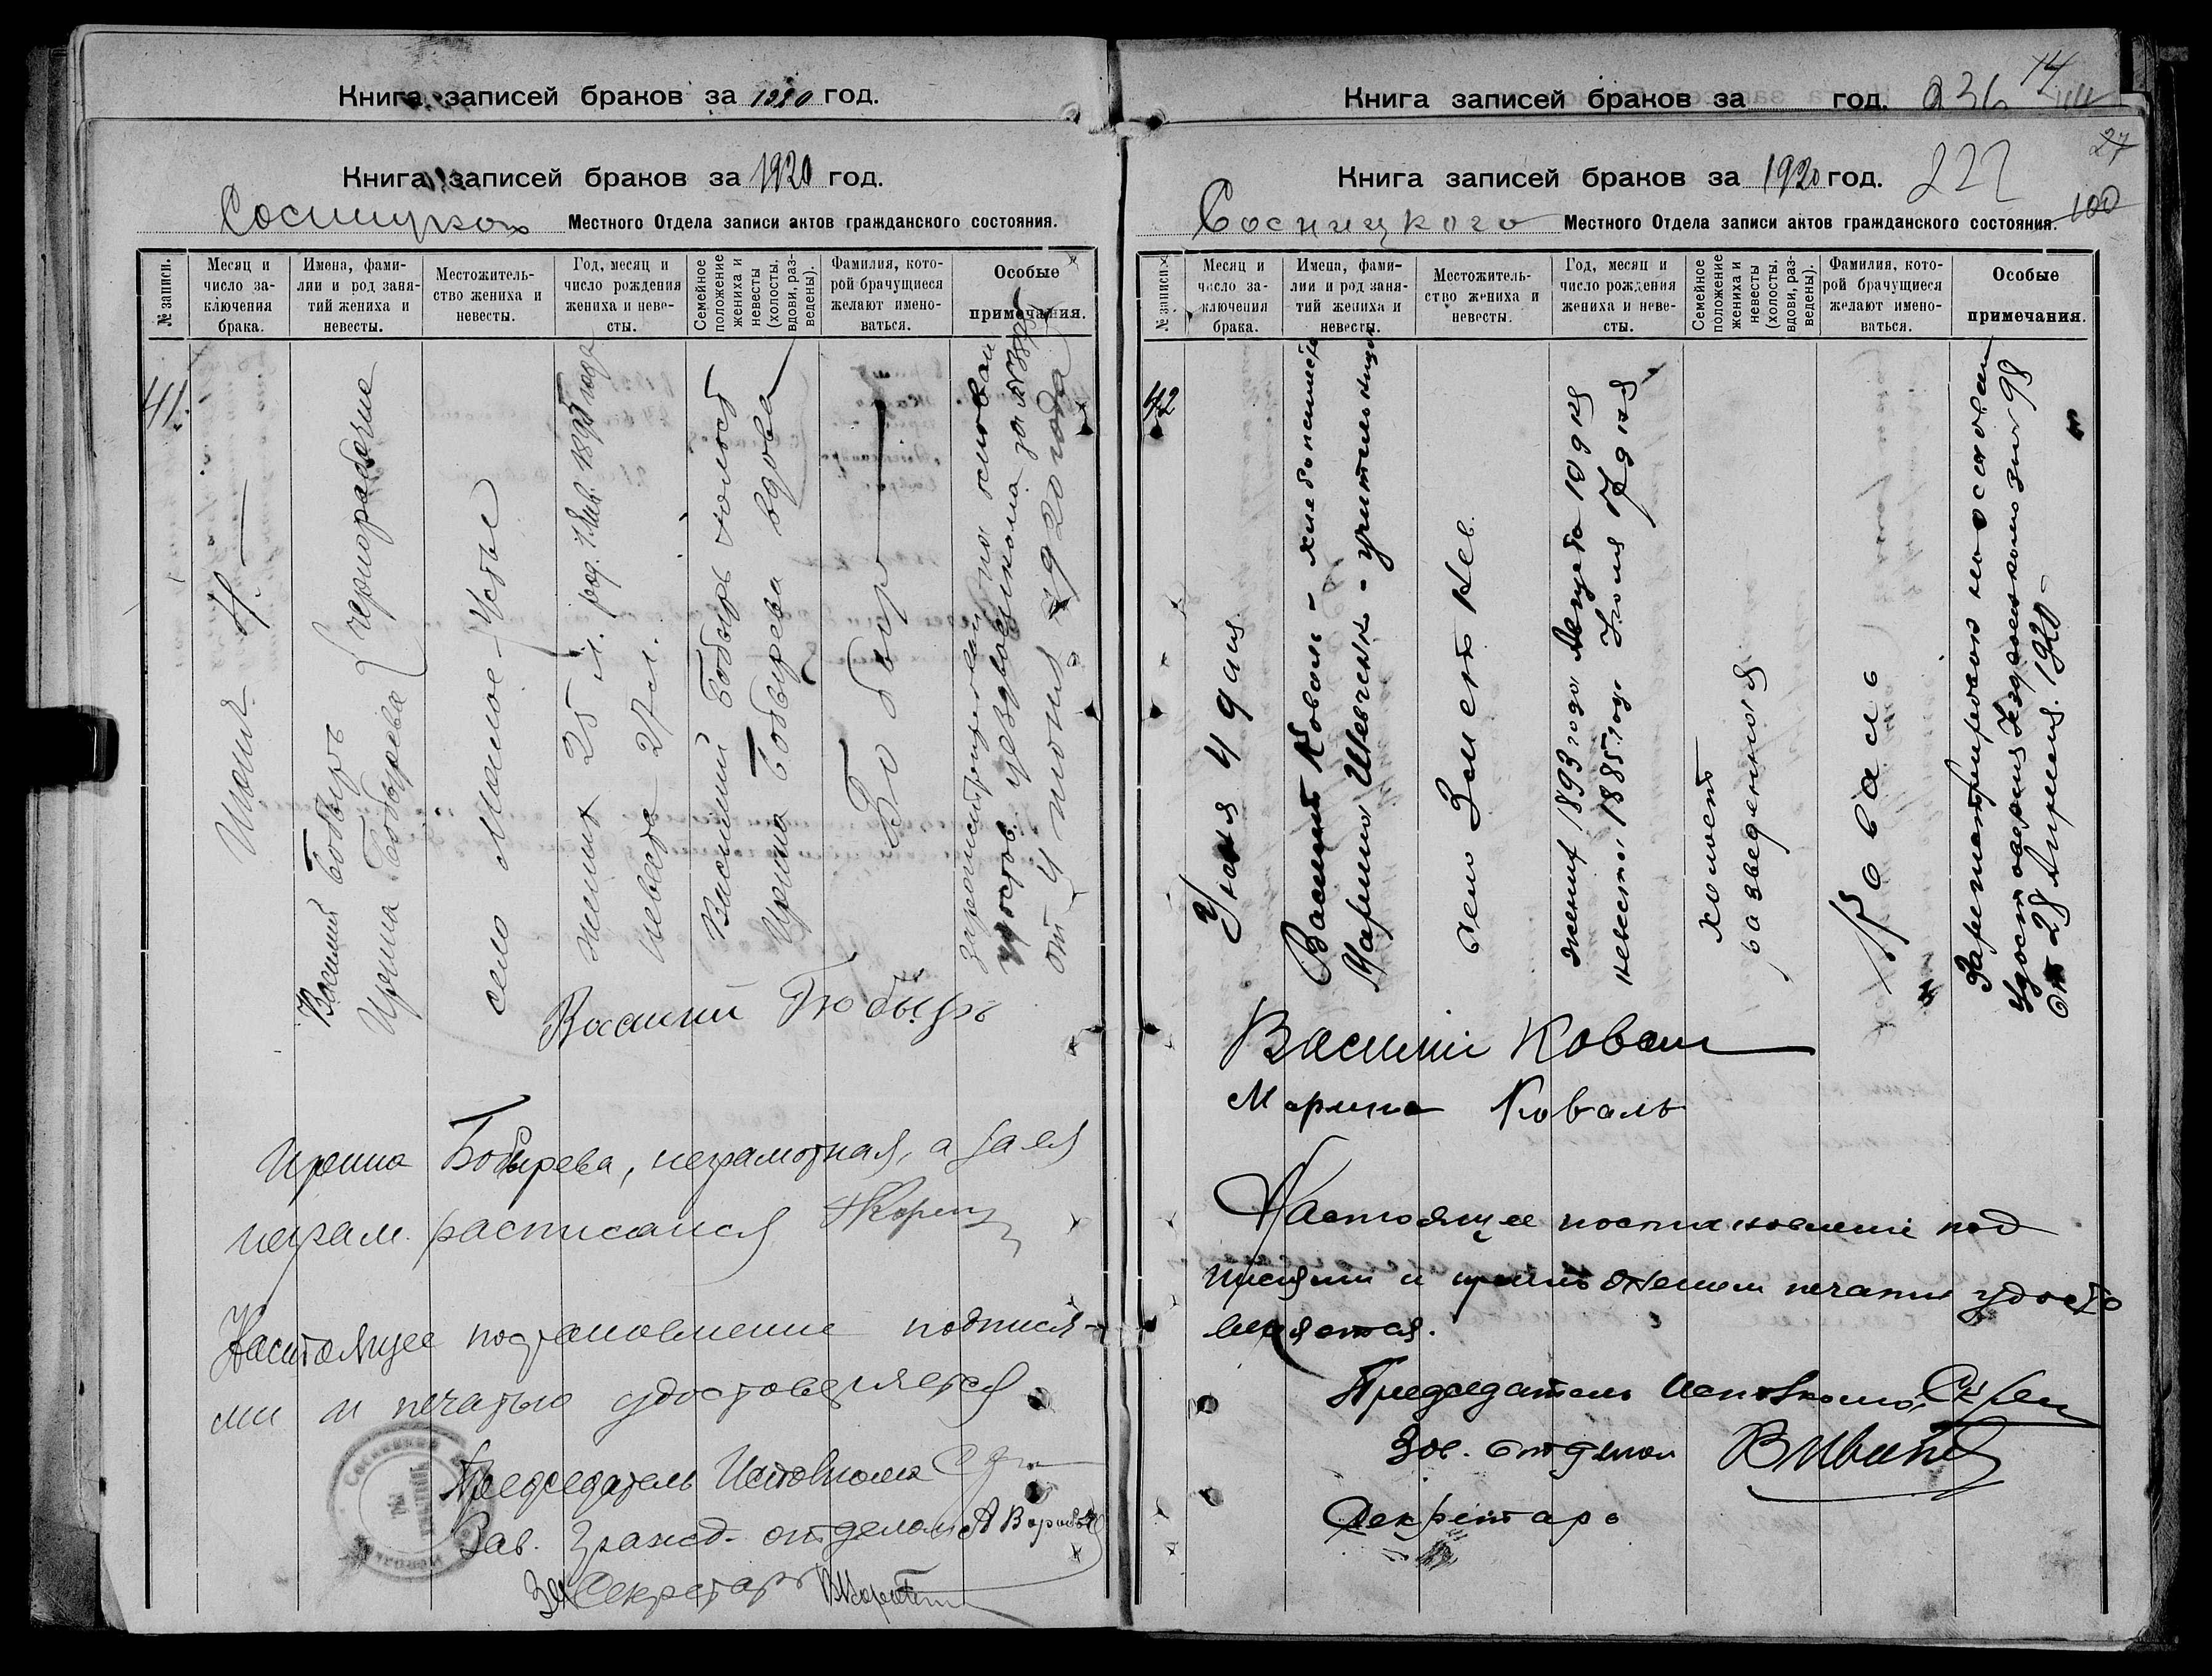 Книга записей браков за 1920 год.
Книга записей браков за 1920 год.
Местного Отдела записи актов гражданского состояния.
№ записи.
Месяц и
число за-
ключения
брака.
Имена, фами-
лии и род заня-
тий жениха и
невесты.
Местожитель-
ство жениха и
невесты.
Год, месяц и
число рождения
жениха и неве-
сты.
Семейное
положение
жениха и
невесты
(холосты,
вдовы, раз-
ведены).
Фамилия, кото-
рой брачущиеся
желают имено-
ваться.
Особые
примечания.
41.
Июня 4.
Василий Бобырь
Ирина Бобырева
чернорабочие
село Малое Устье
жених 25 л. род. 1 Янв. года
невеста 27 л.
Василий Бобырь холост
Ирина Бобырева вдова
Бобыр
зарегистрирован на основан
удостов.
от 4 июня 1920 года
Василий Бобырь
Ирина Бобырева, неграмотная, а за ея
неграм. расписался
Настоящее постановление подпися-
ми и печатью удостоверяется
Председатель Исповкома
Зав. Гражд. отделом
Секретарь
Книга записей браков за год. 236 14
27
Книга записей браков за 1920 год. 222
100
Сосницкого Местного Отдела записи актов гражданского состояния.
№ записи.
Месяц и
число за-
ключения
брака.
Имена, фами-
лии и род заня-
тий жениха и
невесты.
Местожитель-
ство жениха и
невесты.
Год, месяц и
число рождения
жениха и неве-
сты.
Семейное
положение
жениха и
невесты
(холосты,
вдовы, раз-
ведены).
Фамилия, кото-
рой брачущиеся
желают имено-
ваться.
Особые
примечания.
42
4 дня
Василий Коваль - хлебопашец
Марина Шевченко - учительница
село Зметнев
жених 1893 года Августа 10 дня
невеста 1885 года 17 дня
холост
разведенная
Коваль
на основан
98
от 28 Апреля 1920
Василий Коваль
Марина Коваль
Настоящее постановление под
писями и приложением печати удосто
веряется.
Председатель Исповкома
Зав. отделом
Секретарь